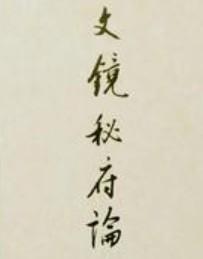 文镜秘府論